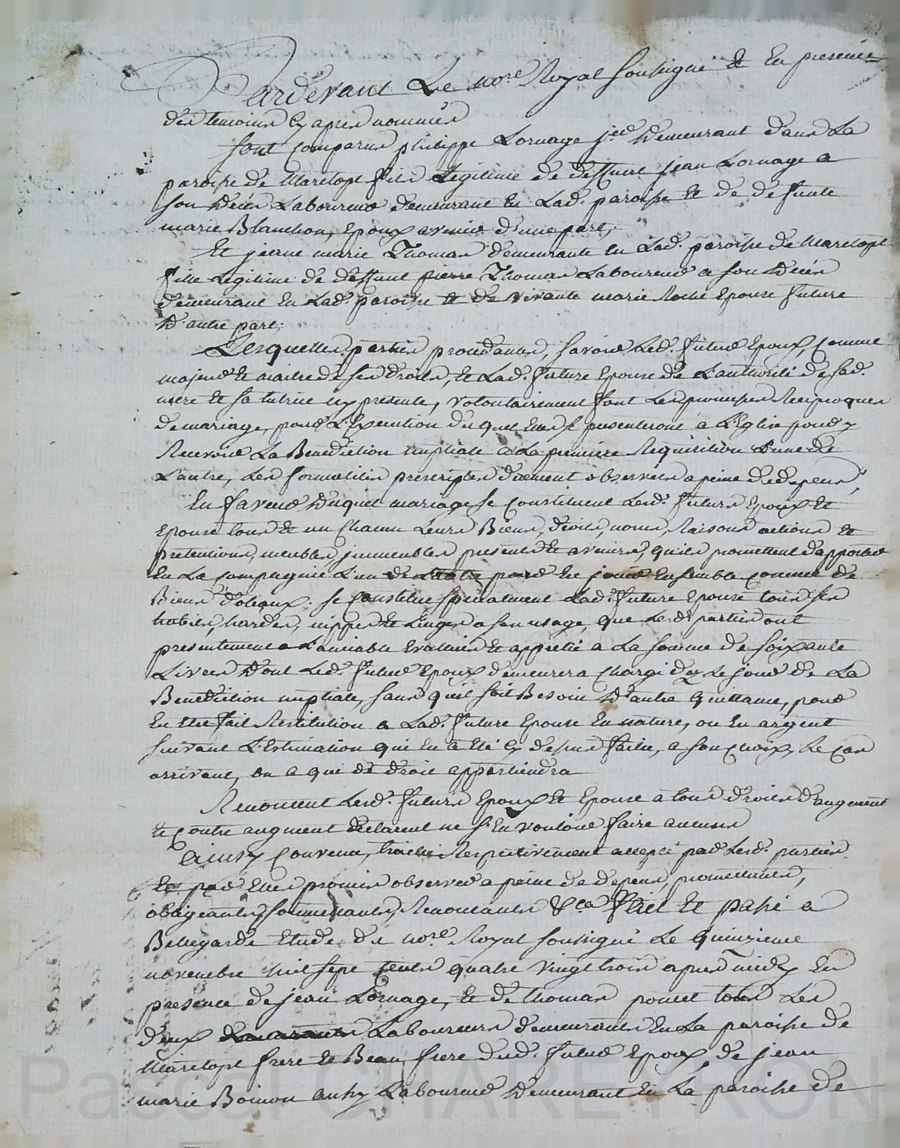 Pardevant Le no.re Royal soussigné et En presence
des temoins Cy apres nommés
sont Comparus philippe Lornage demeurant dans La
paroisse de Marclopt fils Legitime de deffunt jean Lornage a
son deces Laboureur demeurant En Lad. paroisse et de deffunte
marie Blanchon, Epoux avenir d'une part;
Et jeanne marie Thomas demeurante En Lad. paroisse de Marclopt
fille Legitime de deffunt pierre Thomas Laboureur a son deces
demeurant En Lad. paroisse et de vivante marie Epouse future
D'autre part;
Lesquelles parties procedantes, savoir Led. futur Epoux, Comme
majeur et maitre de ses droits, et Lad. future Epouse de L'authorité de sad.
mere et sa tutrice icy presente, volontairement font Les promesses Reciproques
de mariage, pour L'Execution duquel Elles se presenteront a L'Eglise pour y
Recevoir La Benediction nuptiale a La premiere Requisition L'une de
L'autre, Les formalités prescriptes duement observées a peine de depens;
En faveur duquel mariage se Constituent Lesd. futurs Epoux et
Epouse tous et un Chacun Leurs Biens, droits, noms, Raisons actions et
pretentions, meubles immeubles presents et avenirs, qu'ils promettent d'apporter
En La Compagnie L'un de L'autre pour En jouir Ensemble Comme de
Biens dotaux, se Constitue specialement Lad. future Epouse tous ses
habits, hardes, nippes et Linges a son usage, que Lesd. parties ont
presentement a L'amiable Evalués et apprecié a La somme de soixante
Livres Dont Led. futur Epoux demeurera Chargé dez Le jour de La
Benediction nuptiale, sans qu'il soit Besoin D'autre quittance, pour
En Etre fait Restitution a Lad. future Epouse En nature, ou En argent
suivant L'Estimation qui En a Eté Cy dessus faitte, a son Choix, Le Cas
arrivant, ou a qui de droit appartiendra
Renoncent Lesd. futurs Epoux et Epouse a tous droits d'augment
et Contre augment declarent ne s'En vouloir faire aucuns
Ainsy Convenu, traité Respectivement accepté par Lesd. parties
Et par Elles promis observer a peine de depens, promettantes,
obligeantes, soumettantes, Renonceantes &ca fait et passé a
Bellegarde Etude de no.re Royal soussigné Le quinzieme
novembre mil sept cents quatre vingt trois apres midy En
presence de jean Lornage, et de thomas tous Les
deux Laboureurs demeurants En La paroisse de
Marclopt frere et Beau frere dud. futur Epoux, de jean
marie Boinon Laboureur demeurant En La paroisse de
Pascal CHAREYRON